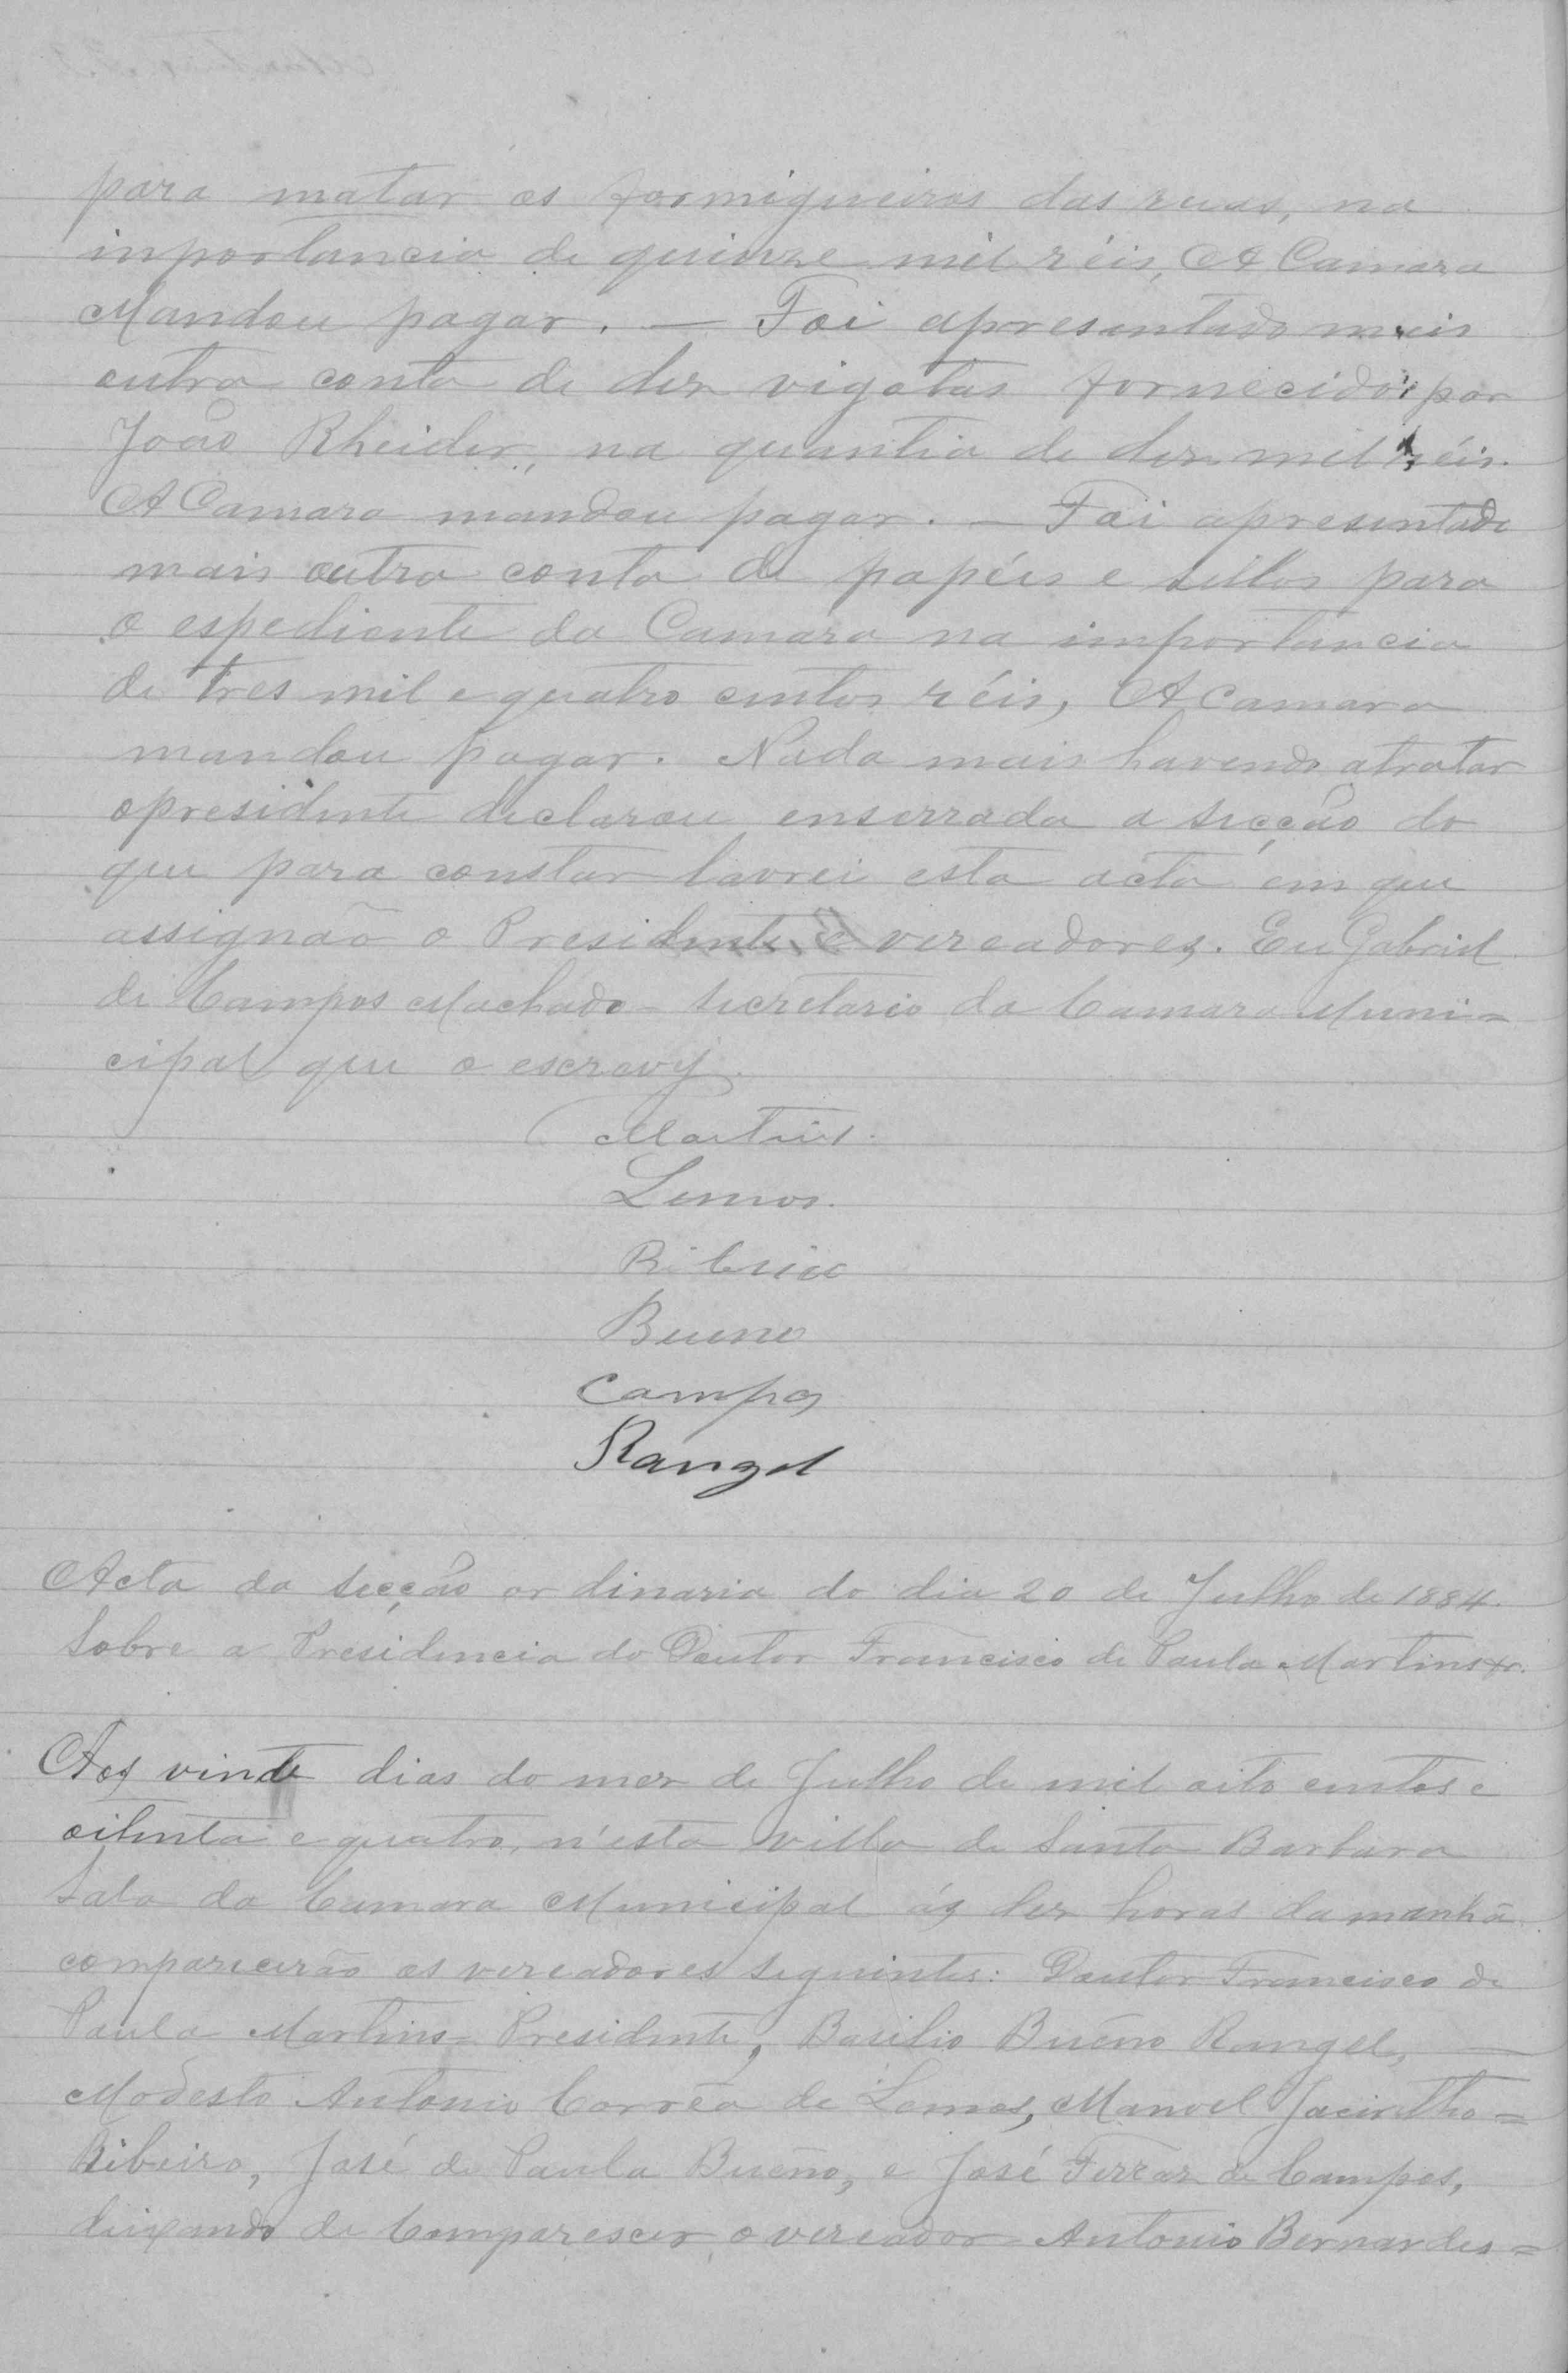 para matar os formigueiros das ruas, na
inportancia de quinze mil réis, A Camara
Mandou pagar. — Foi apresentado mais
outra conta de dez vigotas fornecidos por
João Rheider, na quantia de dez mil réis.
A Camara mandou pagar. — Foi apresentado
mais outra conta de papéis e sillos para
o espediente da Camara na importancia
de tres mil e quatro centos réis, A Camara
mandou pagar. Nada mais havendo atratar
o presidente declarou enserrada a secção do
que para constar lavrei esta acta em que
assignão o Presidente e vereadores. Eu Gabriel
de Campos Machado - secretario da Camara Muni=
cipal que o escrevy.
Martins.
Lemos.
Ribeiro
Bueno
Campos
Rangel
Acta da secção or dinaria do dia 20 de Julho de 1884.
Sobre a Presidencia do Doutor Francisco de Paula Martins
Aos vinte dias do mez de Julho de mil oito centos e
oitenta e quatro, n'esta villa de Santa Barbara
Sala da Camara Municipal ás dez horas da manhã
comparecerão os vereadores seguintes: Doutor Francisco de
Paula Martins = Presidente, Basilio Bueno Rangel, —
Modesto Antonio Corrêa de Lemos, Manoel Jacintho =
Ribeiro, José de Paula Bueno, e José Ferraz de Campos,
deixando de Comparescer o vereador Antonio Bernardes =